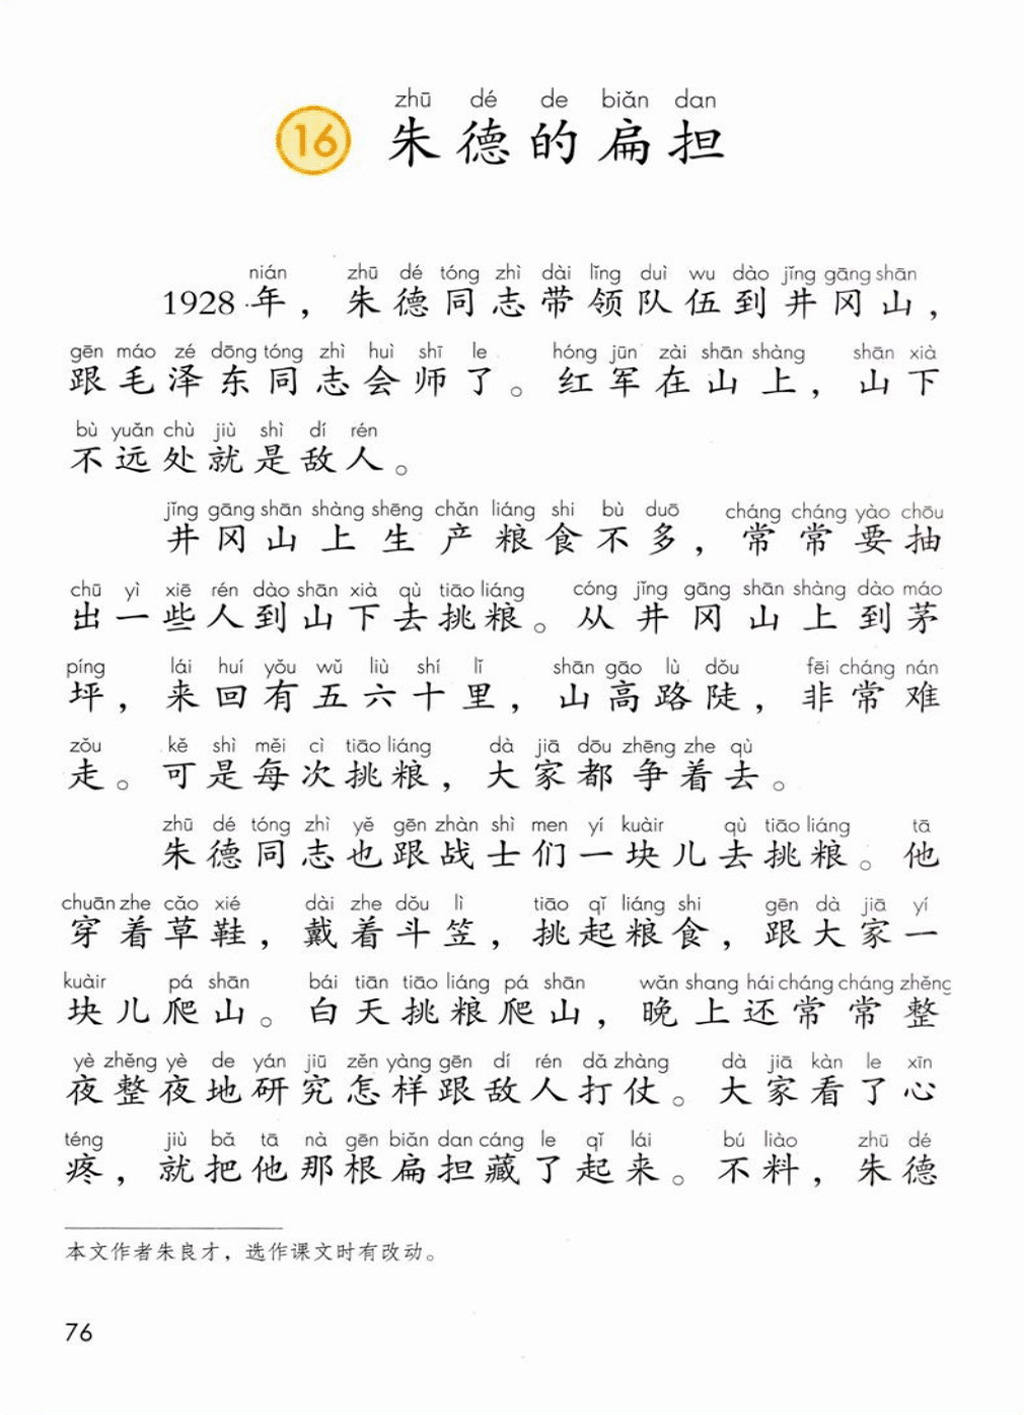 zhū dé de biǎn dan
16 朱德的扁担
nián zhū dé tóng zhì dài lǐng duì wu dào jǐng gāng shān
1928年，朱德同志带领队伍到井冈山，
gēn máo zé dōng tóng zhì huì shī le hóng jūn zài shān shàng shān xià
跟毛泽东同志会师了。红军在山上，山下
bù yuǎn chù jiù shì dí rén
不远处就是敌人。
jǐng gāng shān shàng shēng chǎn liáng shi bù duō cháng cháng yào chōu
井冈山上生产粮食不多，常常要抽
chū yì xiē rén dào shān xià qù tiāo liáng cóng jǐng gāng shān shàng dào máo
出一些人到山下去挑粮。从井冈山上到茅
píng lái huí yǒu wǔ liù shí lǐ shān gāo lù dǒu fēi cháng nán
坪，来回有五六十里，山高路陡，非常难
zǒu kě shì měi cì tiāo liáng dà jiā dōu zhēng zhe qù
走。可是每次挑粮，大家都争着去。
zhū dé tóng zhì yě gēn zhàn shì men yí kuàir qù tiāo liáng tā
朱德同志也跟战士们一块儿去挑粮。他
chuān zhe cǎo xié dài zhe dǒu lì tiāo qǐ liáng shi gēn dà jiā yí
穿着草鞋，戴着斗笠，挑起粮食，跟大家一
kuàir pá shān bái tiān tiāo liáng pá shān wǎn shang hái cháng cháng zhěng
块儿爬山。白天挑粮爬山，晚上还常常整
yè zhěng yè de yán jiū zěn yàng gēn dí rén dǎ zhàng dà jiā kàn le xīn
夜整夜地研究怎样跟敌人打仗。大家看了心
téng jiù bǎ tā nà gēn biǎn dan cáng le qǐ lái bú liào zhū dé
疼，就把他那根扁担藏了起来。不料，朱德
本文作者朱良才，选作课文时有改动。
76